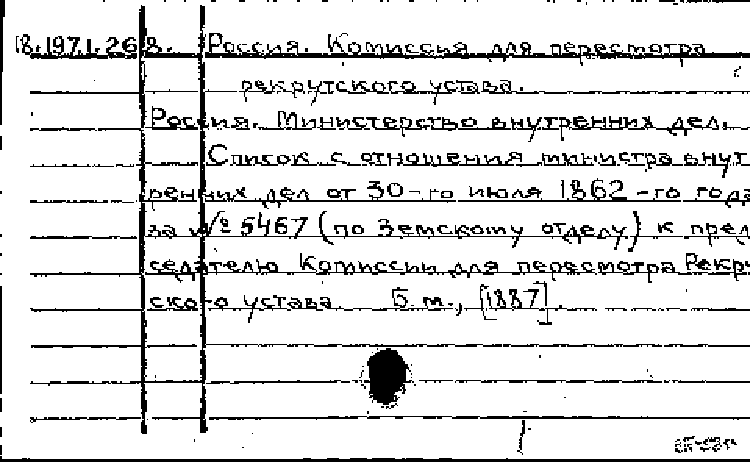 18.197.1.268. Россия. Комиссия для пересмотра
рекрутского устава.
Россия. Министерство внутренних дел.
Список с отношения министра внут
ренних дел от 30-го июля 1862-го года
за № 5467 (по Земскому отделу) к пред
седателю Комиссии для пересмотра Рекру
ского устава. Б.м., [1887].